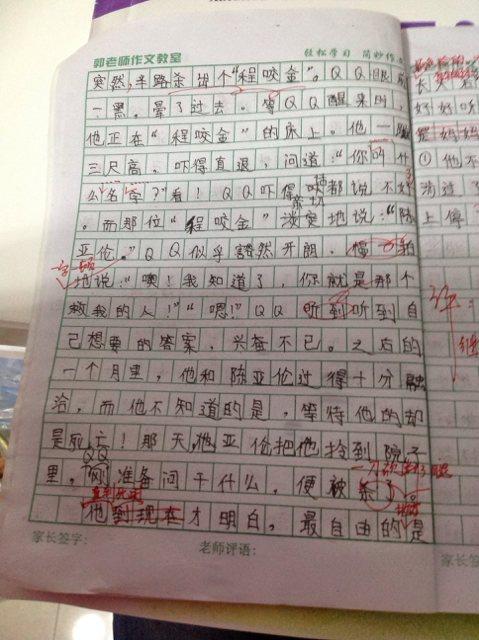 郭老师作文教室
轻松学习
突然,半路杀出个“程咬金”。QQ眼前
一黑。晕了过去。等QQ醒来时,
他正在“程咬金”的床上。他一蹦
三尺高。吓得直退,问道:“你叫什
么名字?”看!QQ吓得话都说不好
。而那位“程咬金”淡定地说:“陈
亚伦。”QQ似乎豁然开朗。
地说:“噢!我知道了,你就是那个
救我的人!”“嗯!”QQ听到听到自
己想要的答案,兴奋不已。之后的
一个月里,他和陈亚伦过得十分融
洽,而他不知道的是,等待他的却
是死亡!那天,他亚伦把他拎到院子
里。QQ刚准备问干什么,便被杀了。
直到死
他到现在才明白,最自由的是
家长签字:
老师评语:
长
好好听
是妈妈
①他不
动过
上停
继